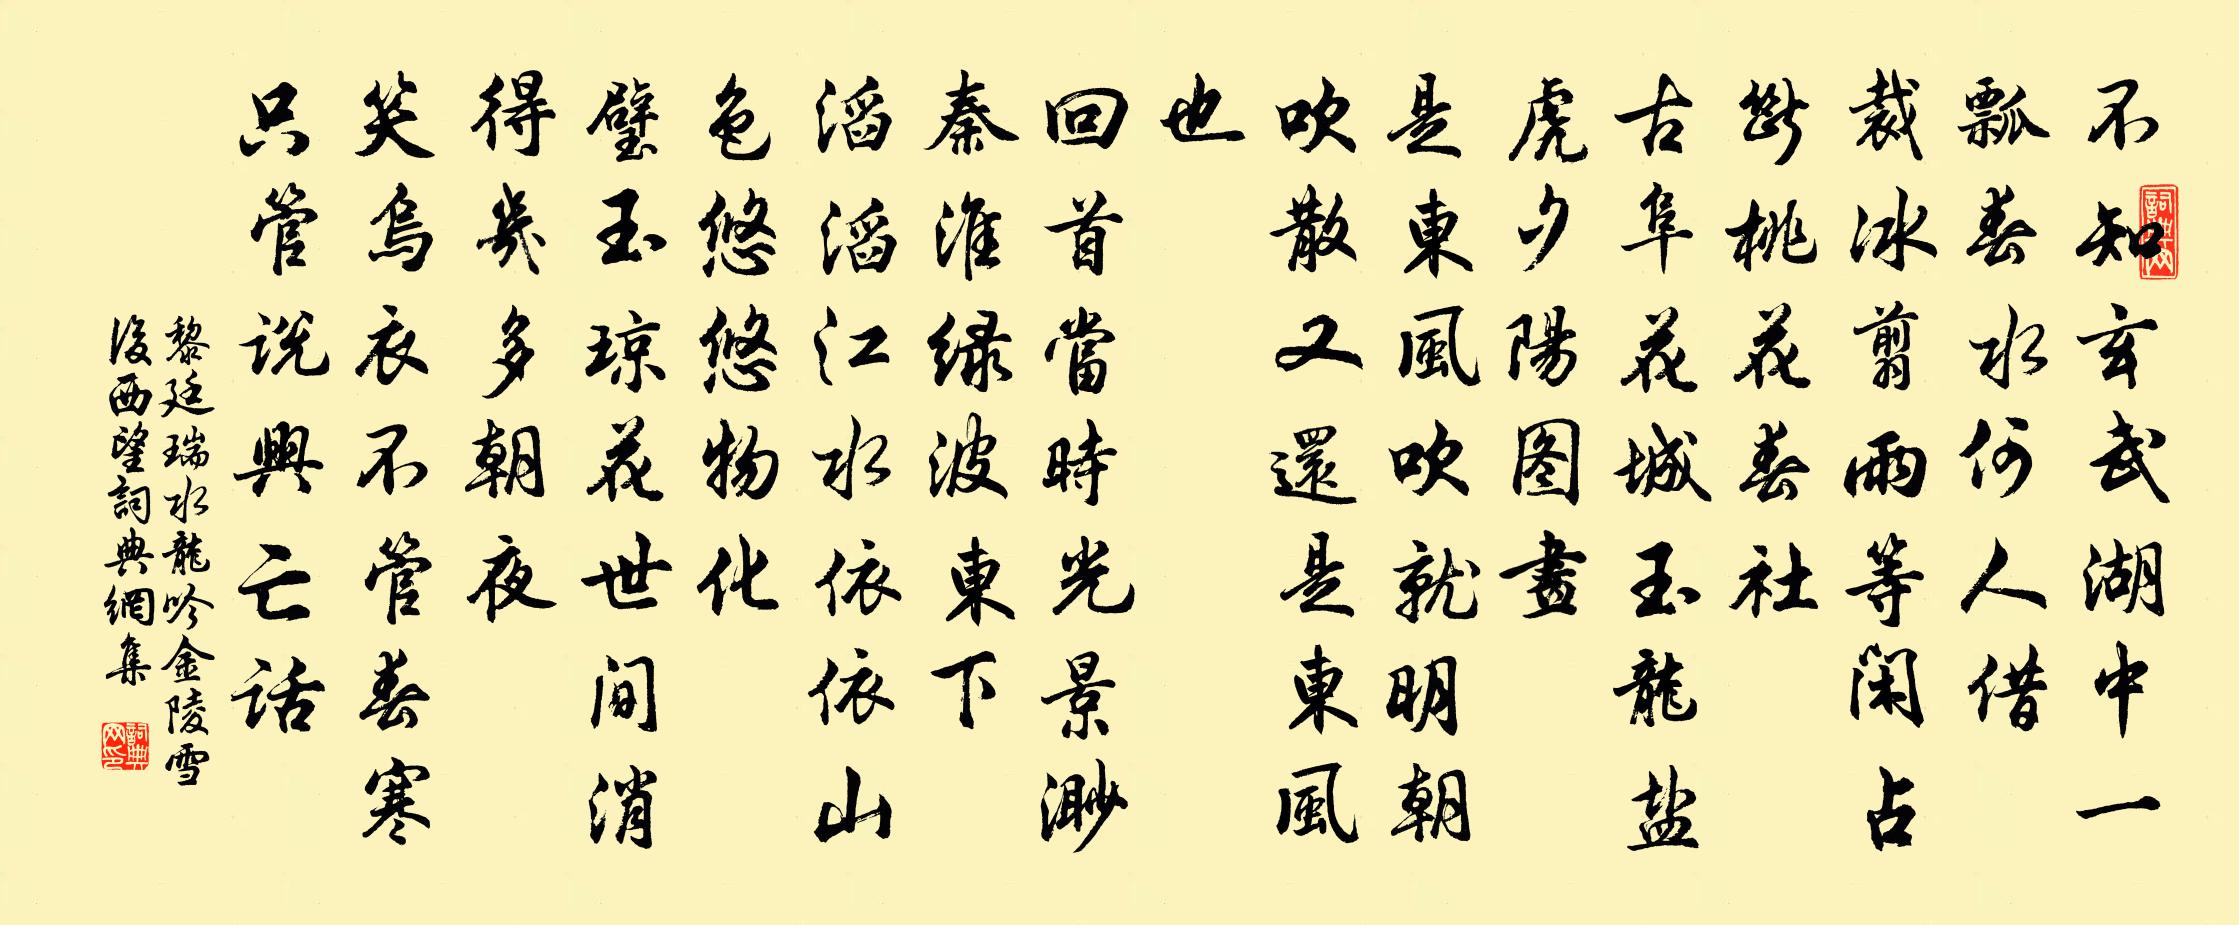 不知玄武湖中一
瓢春水何人借
裁冰剪雨等閑占
斷桃花春社
古阜花城玉龍盐
虎夕陽图畫
是東風吹就明朝
吹散又還是東風
也
回首當時光景渺
秦淮绿波東下
滔滔江水依依山
色悠悠物化
璧玉琼花世间消
得幾多朝夜
笑烏衣不管春寒
只管说興亡话
黎廷瑞水龍吟金陵雪
後西望詞典網集